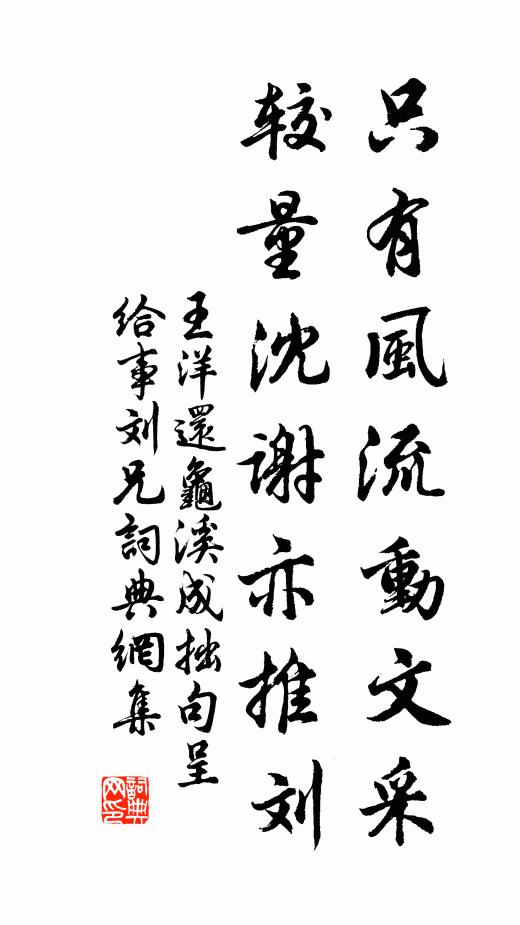 只有風流動文采
较量沈谢亦推刘
王洋還龜溪成拙句呈
给事刘兄詞典網集
詞典网印